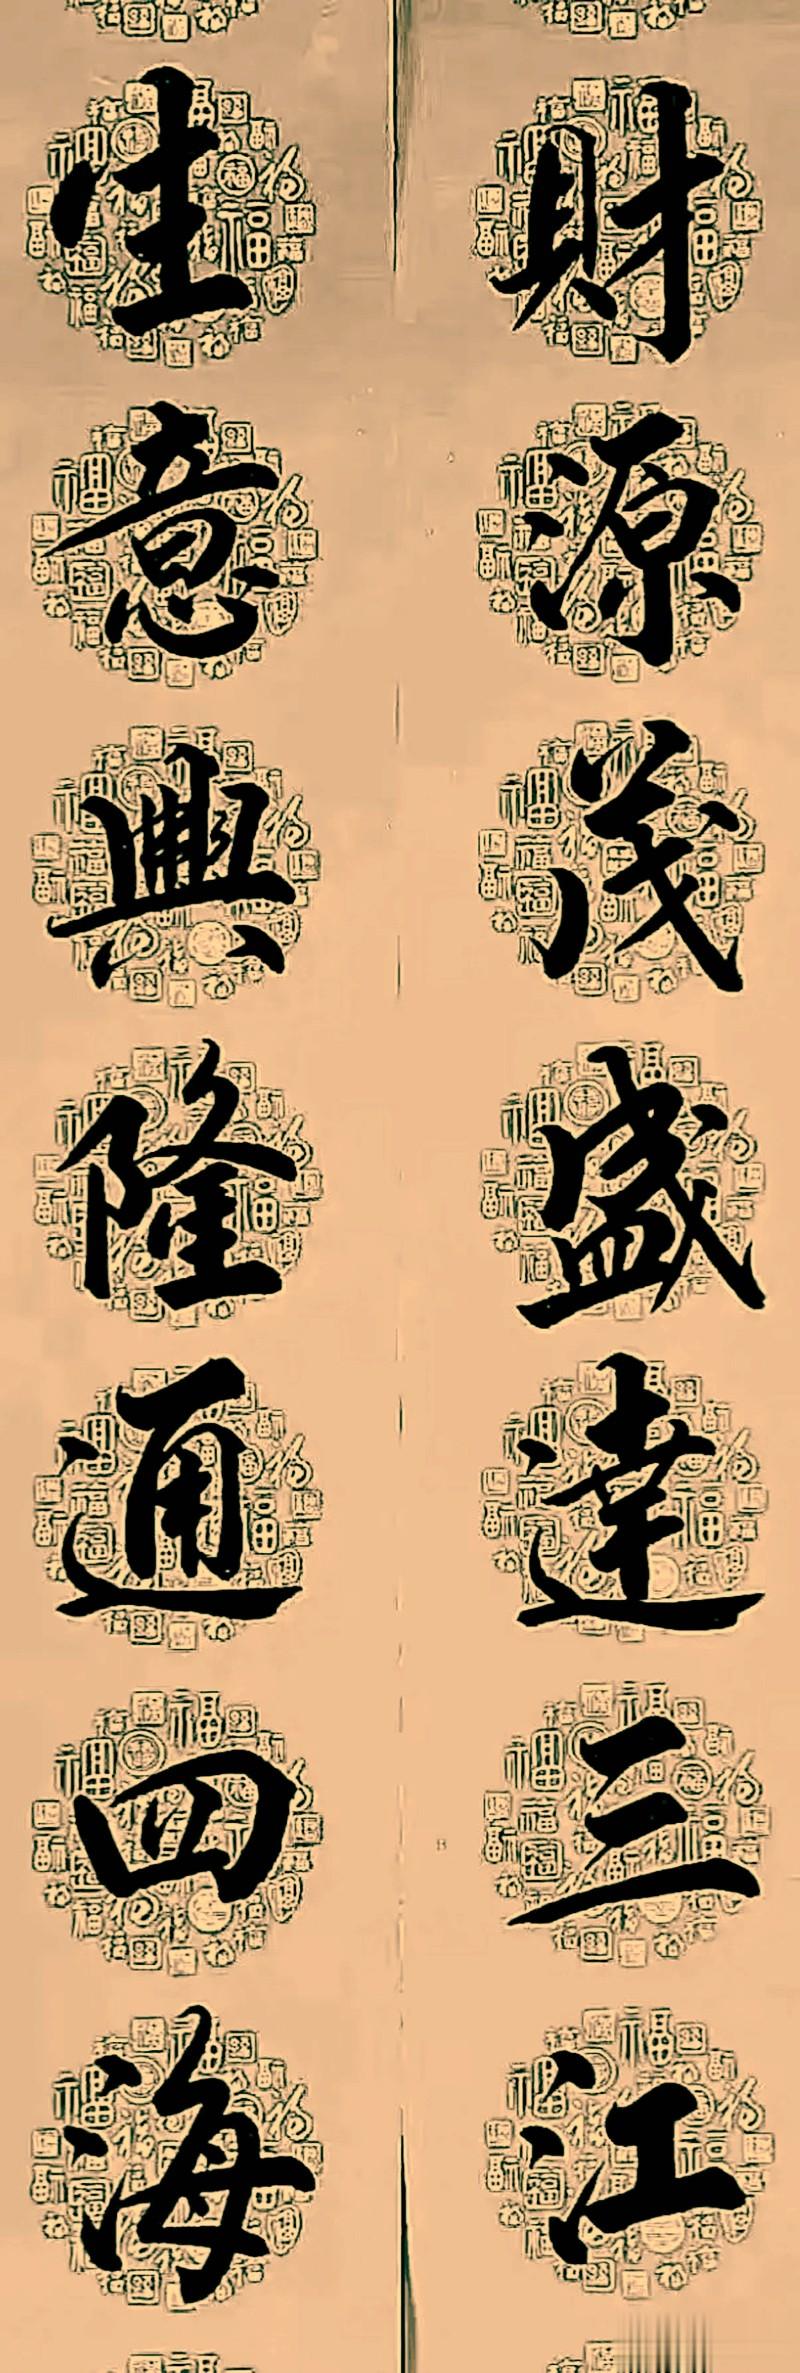 財源茂盛達三江
生意興隆通四海